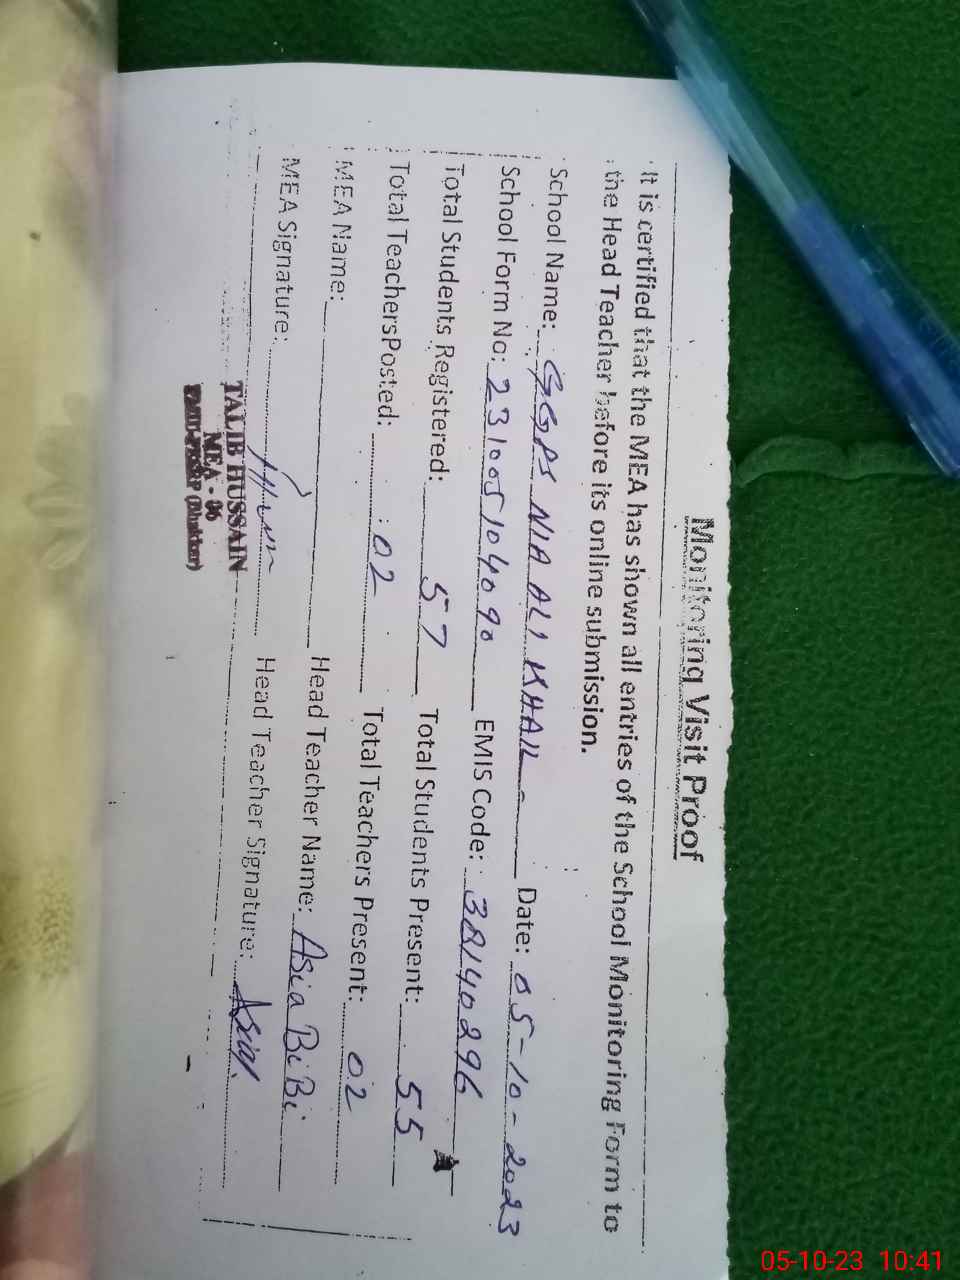 Monitoring Visit Proof
It is certified that the MEA has shown all entries of the School Monitoring Form to
the Head Teacher before its online submission.
School Name: GGPS NIA ALI KHAIL Date: 05-10-2023
School Form No: 231005104090 EMIS Code: 38140296
Total Students Registered: 57 Total Students Present: 55
Total TeachersPosted: 02 Total Teachers Present: 02
MEA Name: Head Teacher Name: Asia BiBi
MEA Signature: Head Teacher Signature: Asia
TALIB HUSSAIN
MEA - 06
(Bhakkar)
05-10-23 10:41